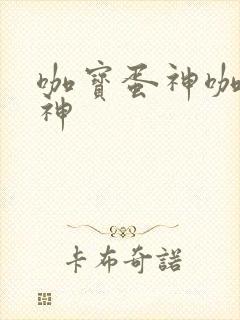 咖寶蛋神咖
神
卡布奇諾